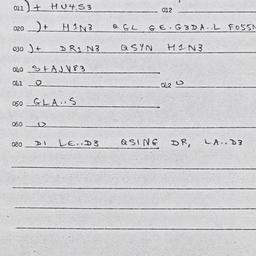 011 )+ HU4.S3 012
020 )+ H1N3 QGL GE.G3DA..L F055N
030 )+ DR1N3 QSYN H1N3
040 S+AJVP3
041 0 042 0
050 GLA..S
060 1)
080 D1 LE..D3 QSING DR, LA..D3